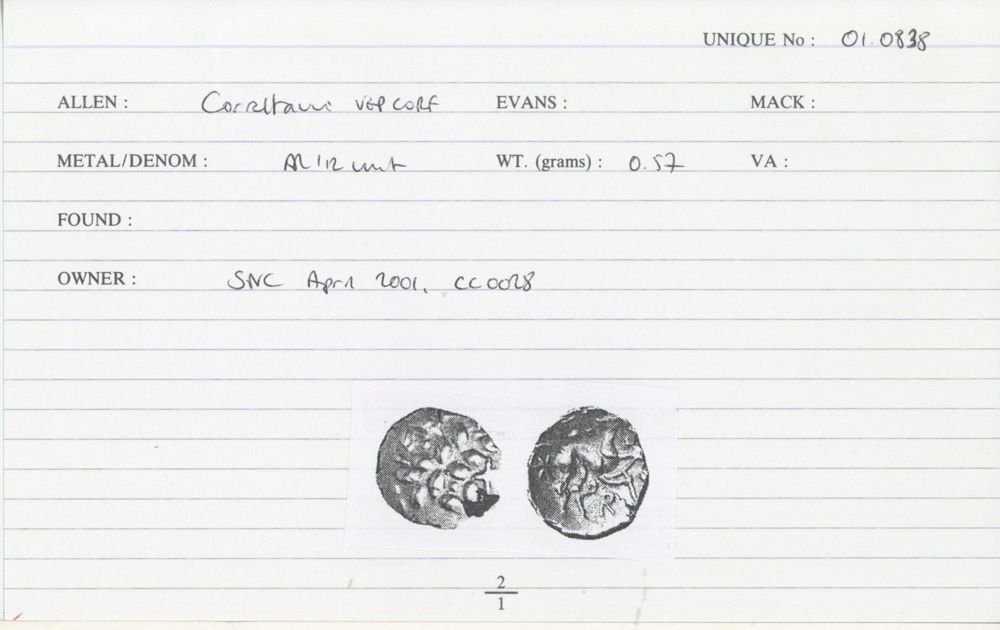 UNIQUE No : 01.0838
ALLEN : Correltauvi VEP CORF EVANS : MACK :
METAL/DENOM : AR 1/2 unit WT. (grams) : 0.57 VA :
FOUND :
OWNER : SNC April 2001, CC0028
2
1